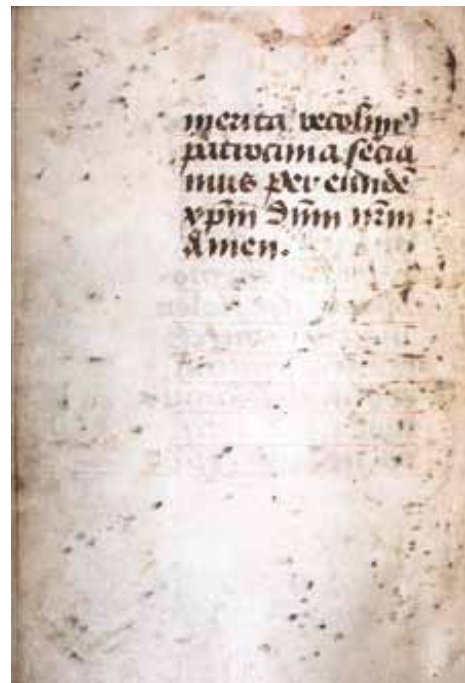 merita recolim⁹
patrocinia sēcia
mus per eūndē
xp̄m dn̄m nr̄m :
Amen.